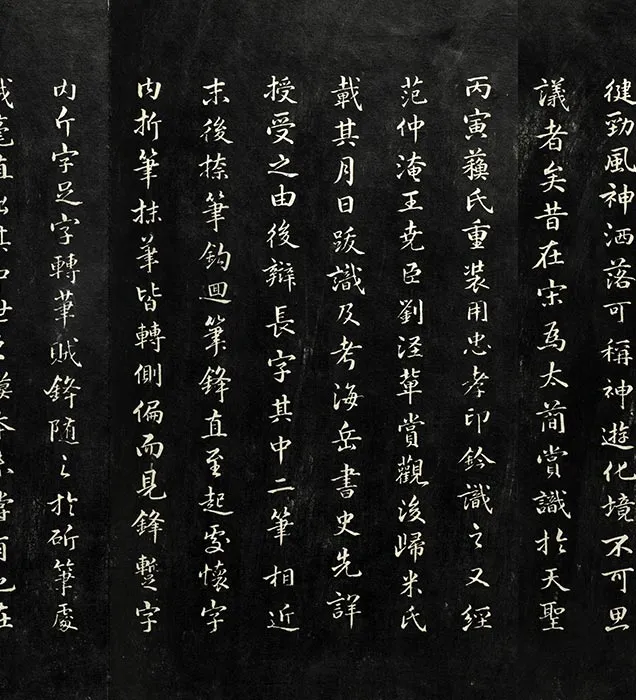 健勁風神洒落可稱神遊化境不可思
議者矣昔在宋為太簡賞識於天聖
丙寅蘓氏重裝用忠孝印鈐識之又經
范仲淹王尭臣劉涇軰賞觀後歸米氏
載其月日跋識及考海岳書史先詳
授受之由後辯長字其中二筆相近
末後捺筆鈎迴筆鋒直至起處懷字
内折筆抹筆皆轉側偏而見鋒蹔字
内斤字足字轉筆賊鋒隨之於斫筆處
毫直出其中世之模本